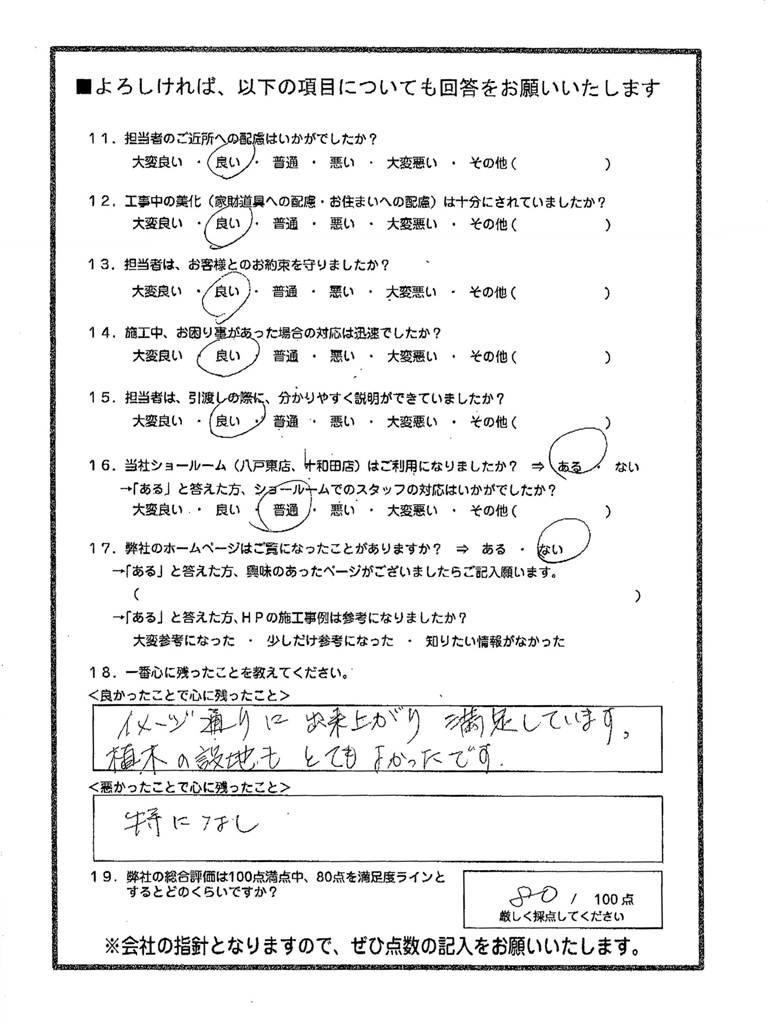 ■よろしければ、以下の項目についても回答をお願いいたします
11．担当者のご近所への配慮はいかがでしたか？
大変良い ・ 良い ・ 普通 ・ 悪い ・ 大変悪い ・ その他（　　　　　）
12．工事中の美化（家財道具への配慮・お住まいへの配慮）は十分にされていましたか？
大変良い ・ 良い ・ 普通 ・ 悪い ・ 大変悪い ・ その他（　　　　　）
13．担当者は、お客様とのお約束を守りましたか？
大変良い ・ 良い ・ 普通 ・ 悪い ・ 大変悪い ・ その他（　　　　　）
14．施工中、お困り事があった場合の対応は迅速でしたか？
大変良い ・ 良い ・ 普通 ・ 悪い ・ 大変悪い ・ その他（　　　　　）
15．担当者は、引渡しの際に、分かりやすく説明ができていましたか？
大変良い ・ 良い ・ 普通 ・ 悪い ・ 大変悪い ・ その他（　　　　　）
16．当社ショールーム（八戸東店、十和田店）はご利用になりましたか？ ⇒ ある ・ ない
→「ある」と答えた方、ショールームでのスタッフの対応はいかがでしたか？
大変良い ・ 良い ・ 普通 ・ 悪い ・ 大変悪い ・ その他（　　　　　）
17．弊社のホームページはご覧になったことがありますか？ ⇒ ある ・ ない
→「ある」と答えた方、興味のあったページがございましたらご記入願います。
（　　　　　）
→「ある」と答えた方、HPの施工事例は参考になりましたか？
大変参考になった ・ 少しだけ参考になった ・ 知りたい情報がなかった
18．一番心に残ったことを教えてください。
＜良かったことで心に残ったこと＞
イメージ通りに出来上がり満足しています。
植木の設地もとてもよかったです.
＜悪かったことで心に残ったこと＞
特になし
19．弊社の総合評価は100点満点中、80点を満足度ラインと
するとどのくらいですか？
80 / 100点
厳しく採点してください
※会社の指針となりますので、ぜひ点数の記入をお願いいたします。